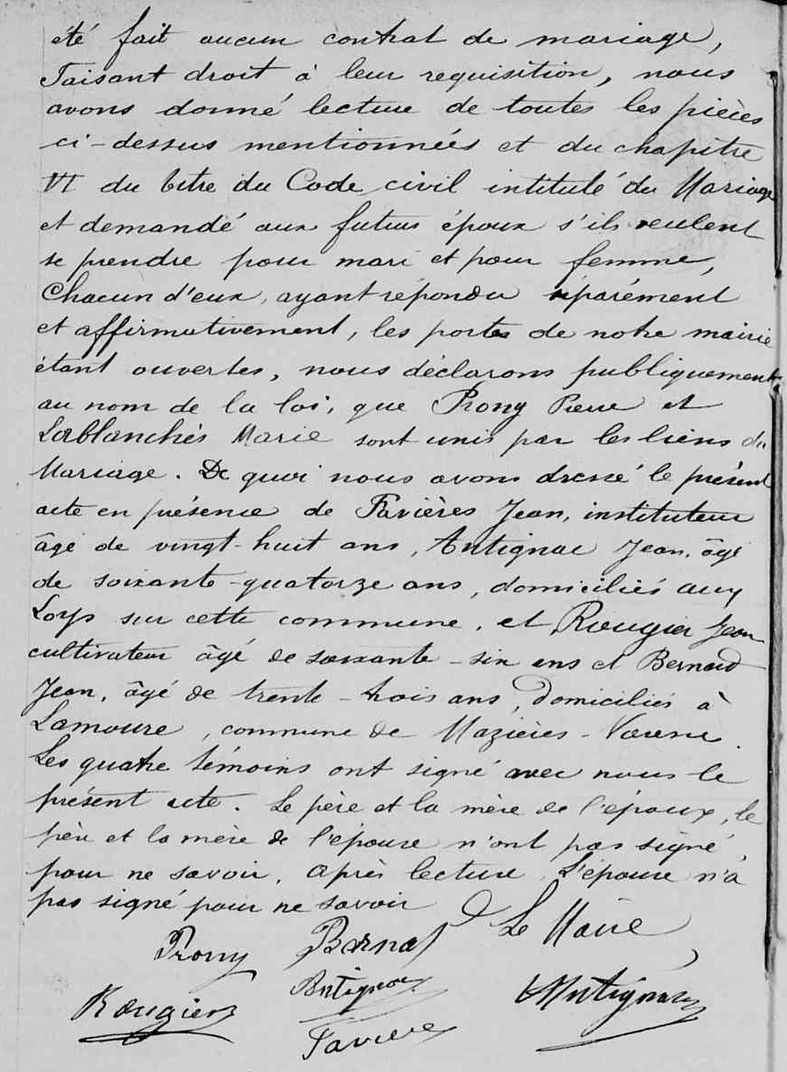 été fait aucun contrat de mariage,
Faisant droit à leur requisition, nous
avons donné lecture de toutes les pièces
ci-dessus mentionnées et du chapitre
VI du titre du Code civil intitulé du Mariage
et demandé aux futurs époux s'ils veulent
se prendre pour mari et pour femme,
Chacun d'eux, ayant répondu séparément
et affirmativement, les portes de notre mairie
étant ouvertes, nous déclarons publiquement
au nom de la loi, que Prony Pierre et
Lablanchés Marie sont unis par les liens du
Mariage. De quoi nous avons dressé le présent
acte en présence de Favières Jean, instituteur
âgé de vingt-huit ans, Antignac Jean, âgé
de soixante-quatorze ans, domiciliés aux
sur cette commune, et Rougier Jean
cultivateur âgé de soixante-six ans et Bernard
Jean, âgé de trente-trois ans, domiciliés à
Lamoure, commune de Mazières-
Les quatre témoins ont signé avec nous le
présent acte. Le père et la mère de l'époux, le
père et la mère de l'épouse n'ont pas signé,
pour ne savoir, après lecture. L'épouse n'a
pas signé pour ne savoir
Le Maire
Prony
Antignac
Rougier
Antignac
Favière